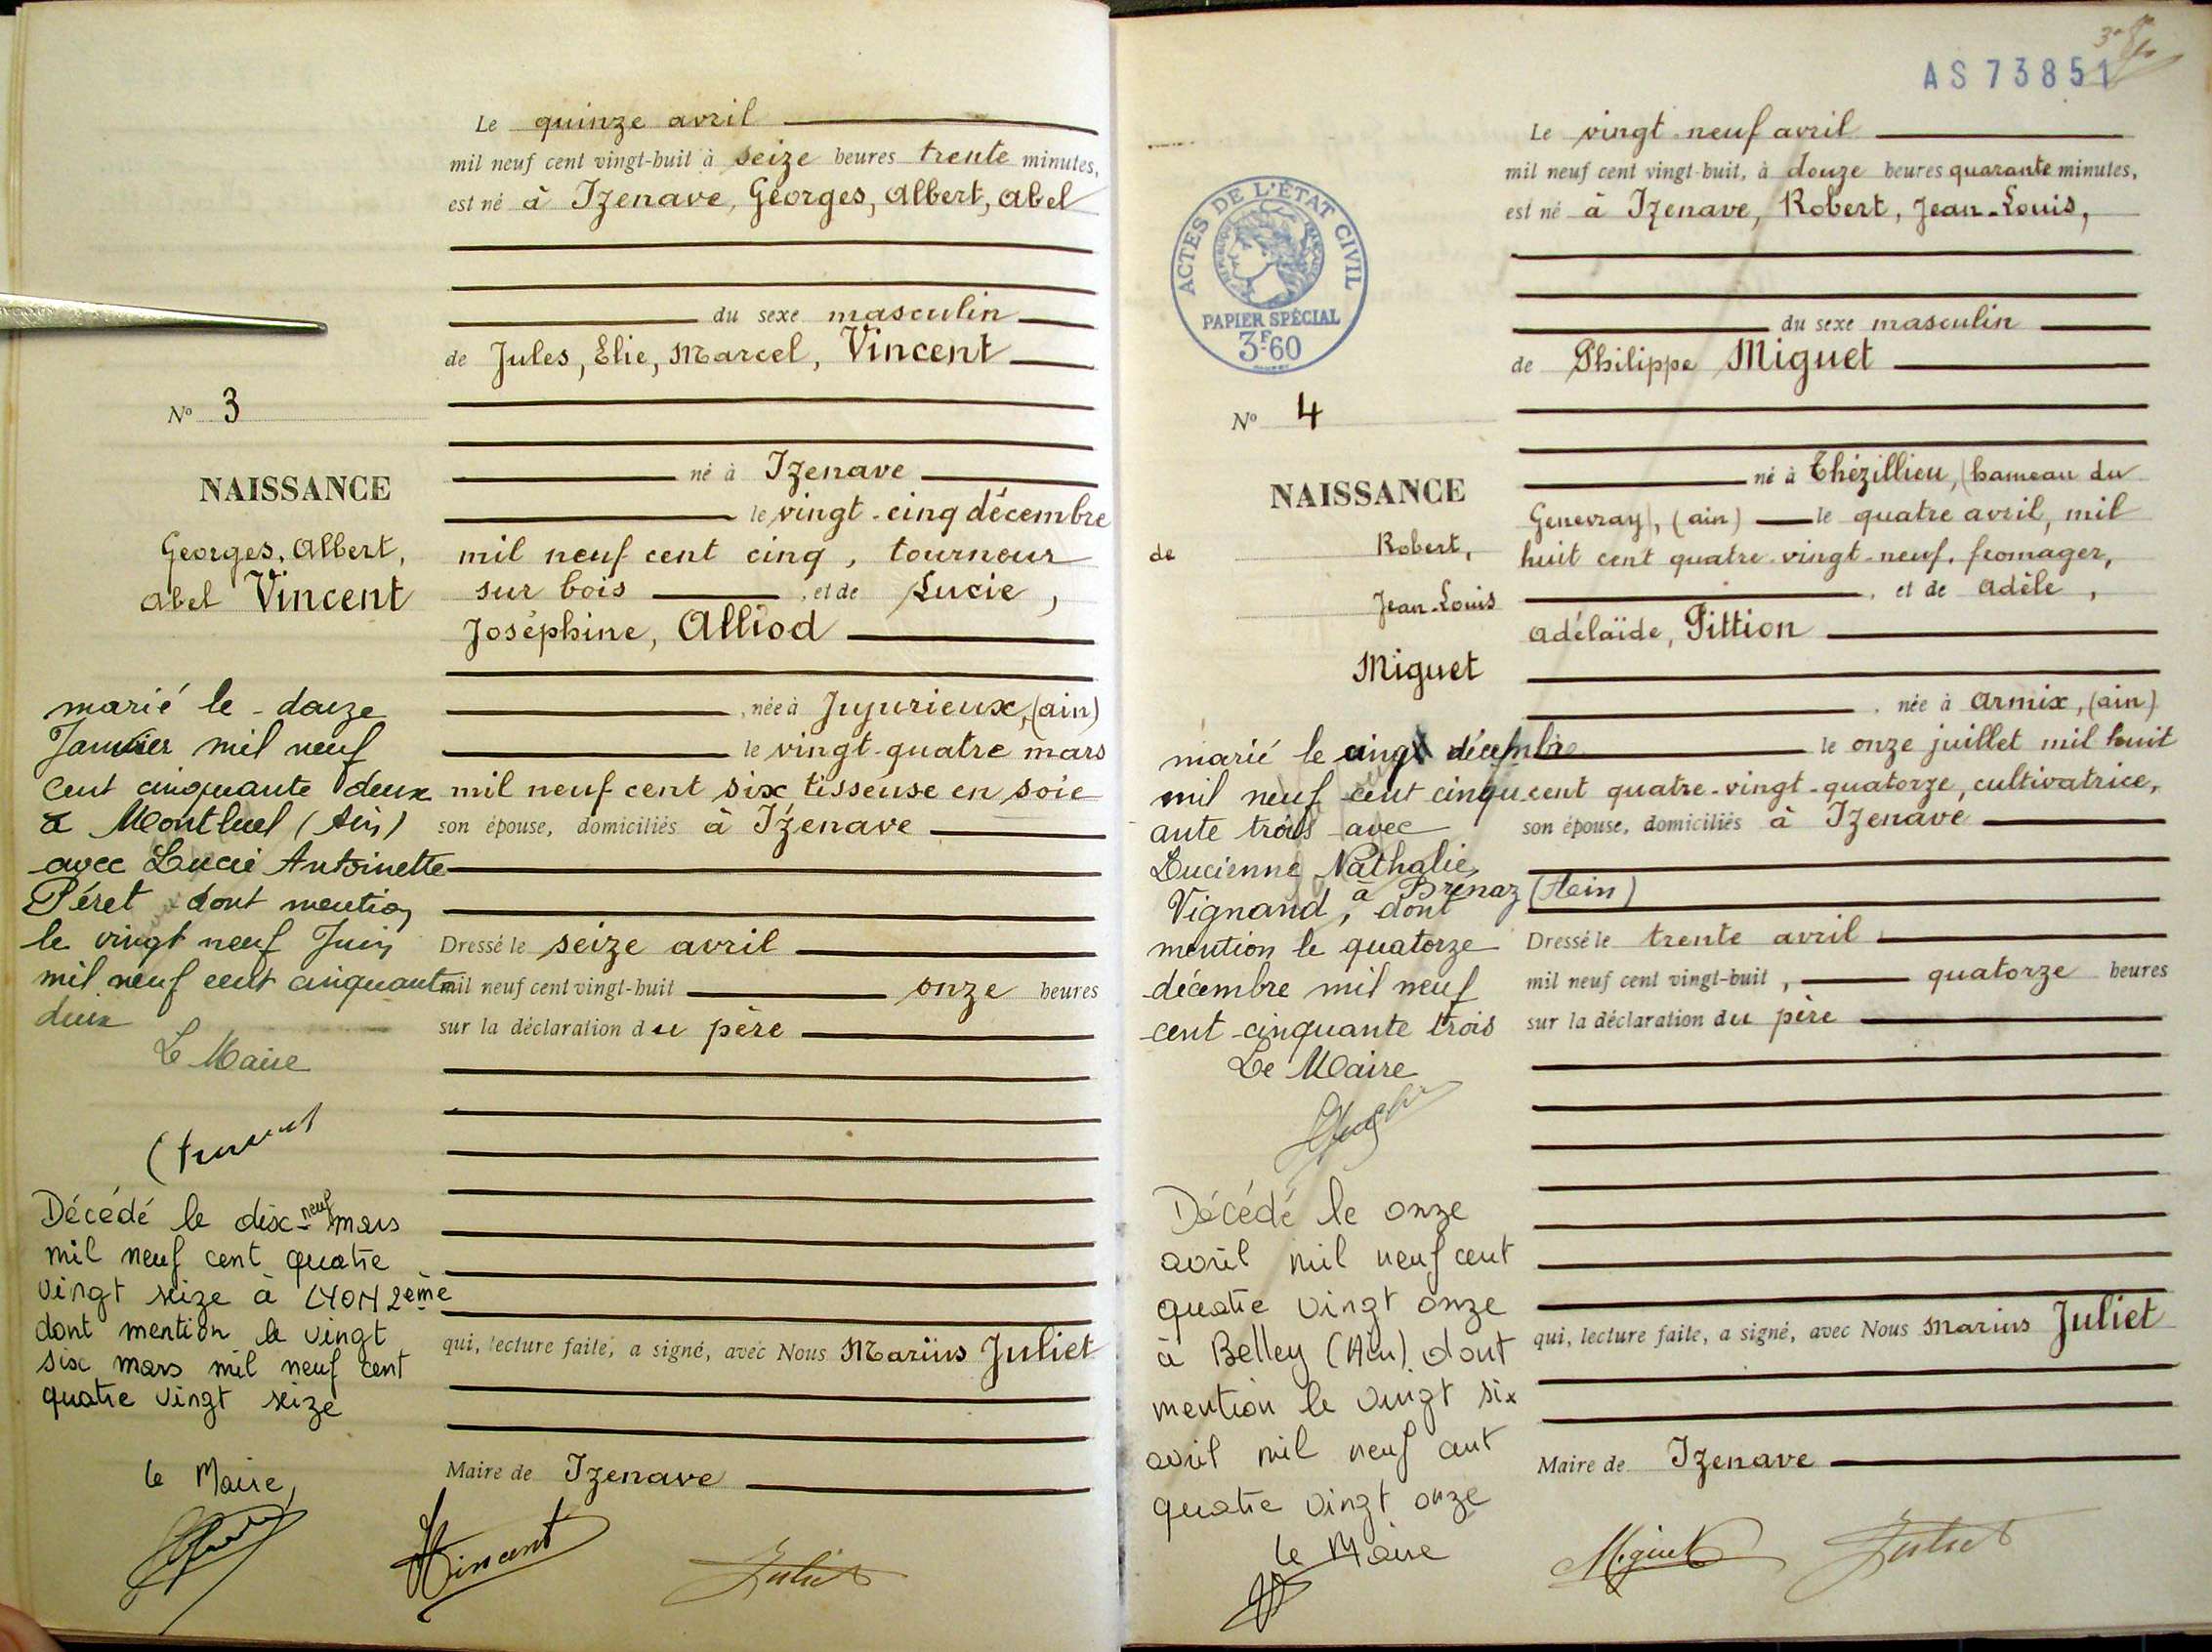 Le quinze avril
mil neuf cent vingt-huit à seize heures trente minutes,
est né à Izenave, Georges, Albert, Abel
du sexe masculin
de Jules, Elie, Marcel, Vincent
N° 3
né à Izenave
NAISSANCE
le vingt-cinq décembre
Georges, Albert,
Abel Vincent
mil neuf cent cinq, tourneur
sur bois, et de Lucie,
Joséphine, Alliod
née à Jujurieux, (Ain)
le vingt-quatre mars
mil neuf cent six tisseuse en soie
son épouse, domiciliés à Izenave
Dressé le seize avril
mil neuf cent vingt-huit onze heures
sur la déclaration du père
qui, lecture faite, a signé, avec Nous Marius Juliet
Maire de Izenave
marié le douze
Janvier mil neuf
cent cinquante deux
à Montluel (Ain)
avec Lucie Antoinette
Péret dont mention
le vingt neuf Juin
mil neuf cent cinquante
deux
Le Maire
Décédé le dix-neuf mars
mil neuf cent quatre
vingt seize à LYON 2ème
dont mention le vingt
six mars mil neuf cent
quatre vingt seize
le Maire,
Vincent
Juliet
AS 73851
Le vingt-neuf avril
mil neuf cent vingt-huit, à douze heures quarante minutes,
est né à Izenave, Robert, Jean-Louis,
ACTES DE L'ÉTAT CIVIL
PAPIER SPÉCIAL
3F60
du sexe masculin
de Philippe Miguet
N° 4
né à Thézillieu, (hameau du
NAISSANCE
Genevray), (Ain) le quatre avril, mil
de Robert,
Jean-Louis
Miguet
huit cent quatre-vingt-neuf, fromager,
, et de Adèle,
Adélaïde, Pittion
, née à Armix, (Ain)
le onze juillet mil huit
cent quatre-vingt-quatorze, cultivatrice,
son épouse, domiciliés à Izenave
Dressé le trente avril
mil neuf cent vingt-huit, quatorze heures
sur la déclaration du père
qui, lecture faite, a signé, avec Nous Marius Juliet
Maire de Izenave
marié le cinq décembre
mil neuf cent cinqu
ante trois avec
Lucienne Nathalie
Vignand, à Brénaz (Ain) dont
mention le quatorze
décembre mil neuf
cent cinquante trois
Le Maire
Décédé le onze
avril mil neuf cent
quatre vingt onze
à Belley (Ain) dont
mention le vingt six
avril mil neuf cent
quatre vingt onze
le Maire
Miguet
Juliet